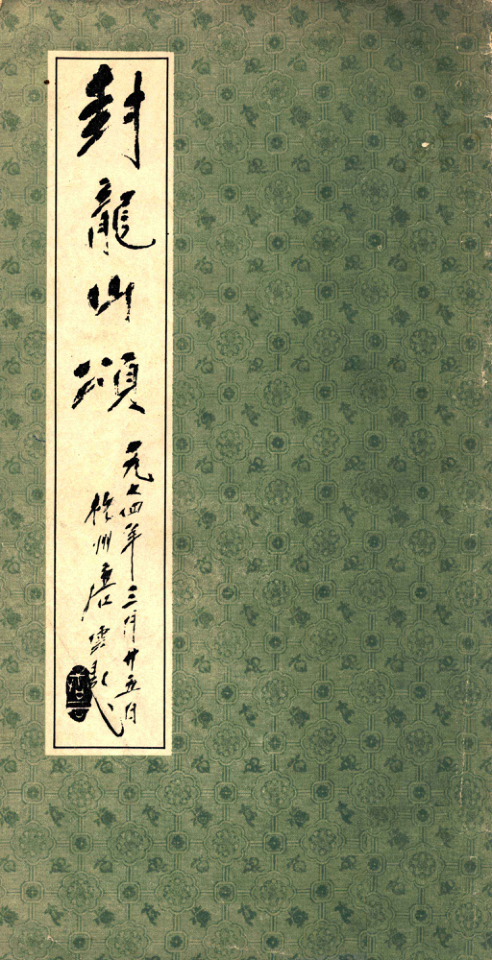 封龍山頌
一九七四年三月廿五日
杭州唐雲